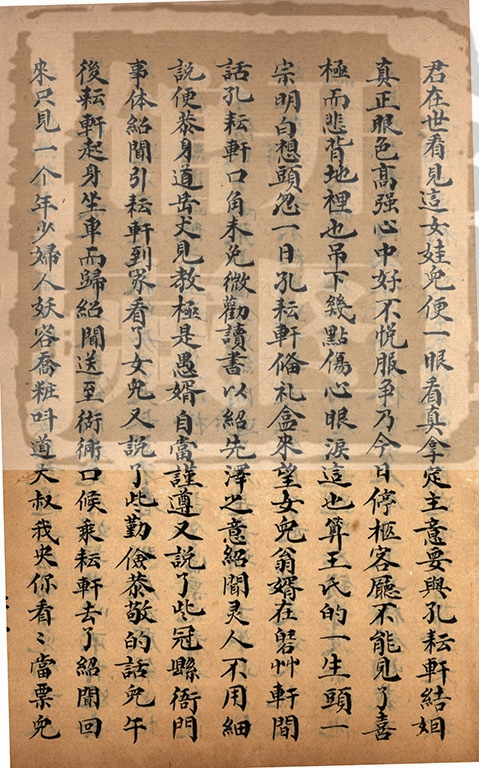 君在世看見這女娃兒便一眼看真拿定主意要與孔耘軒結姻
真正眼色高强心中好不悅服争乃今日停柩客廳不能見了喜
極而悲背地裡也吊下幾點傷心眼淚這也算王氏的一生頭一
宗明白想頭忽一日孔耘軒俻礼盒來望女兒翁婿在碧艸軒閒
話孔耘軒口角未免微勸讀書以紹先澤之意紹聞灵人不用細
說便恭身道岳丈見教極是愚婿自當謹遵又說了些冠縣衙門
事体紹聞引耘軒到家看了女兒又說了些勤儉恭敬的話兒午
後耘軒起身坐車而歸紹聞送至衚衕口候乘耘軒去了紹聞回
來只見一个年少婦人妖容喬粧呌道大叔我央你看〻當票兒